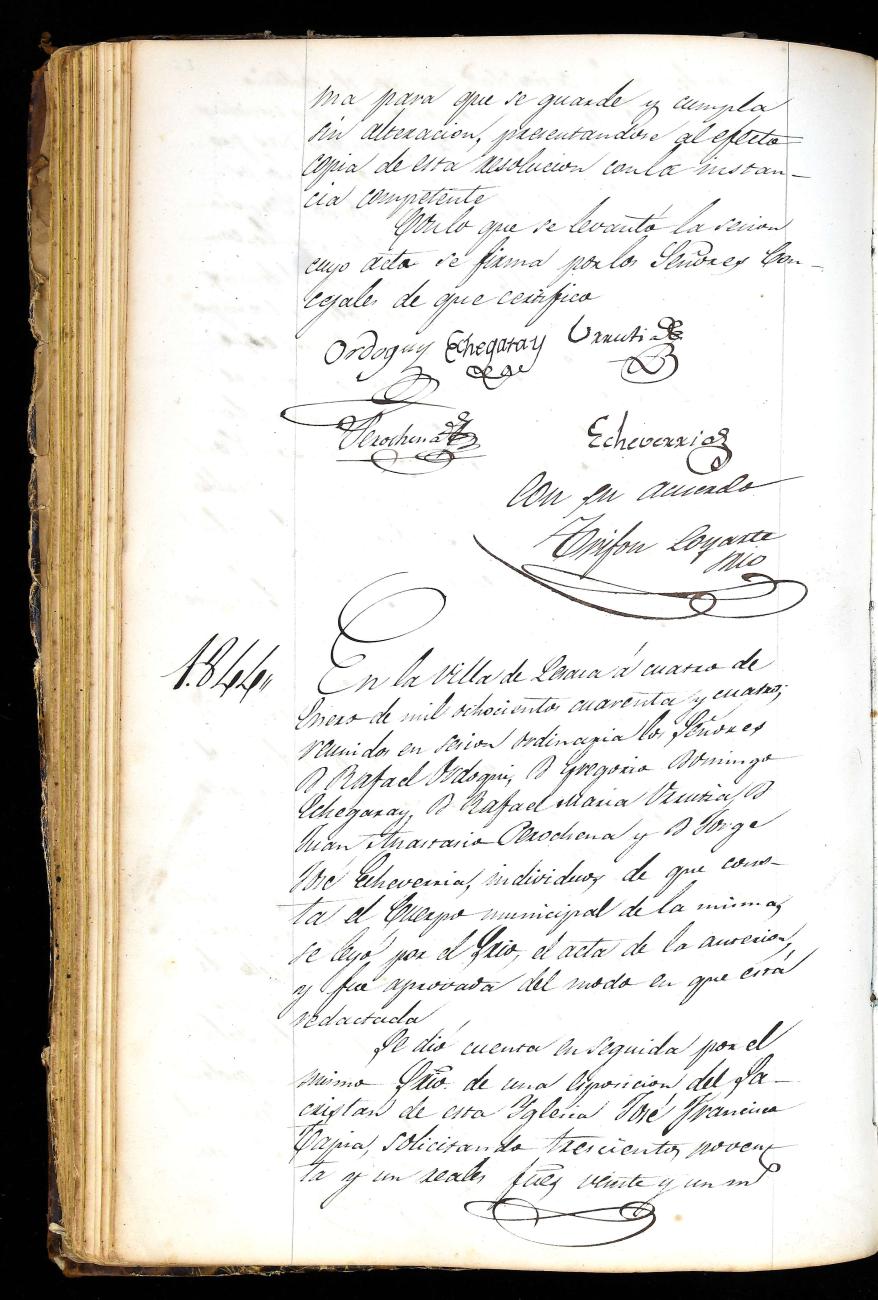 ma para que se guarde y cumpla
sin alteracion, presentandose al efecto
copia de esta resolucion con la instan-
cia competente
Con lo que se levantó la sesion
cuyo acta se firma por los Señores Con-
cejales de que certifico
Ordoquy Echegaray Urrutia
Perochena
Echeverria
Con su acuerdo
Trifon Loyarte
Srio
1.844,,
En la Villa de Lesaca á cuatro de
Enero de mil ochociento cuarenta y cuatro;
reunidos en sesion ordinaria los Señores
D Rafael Ordoqui, D Gregorio Domingo
Echegaray, D Rafael Maria Urrutia, D
Juan Anastasio Perochena y D Jorge
José Echeverria, individuos de que cons-
ta el Cuerpo municipal de la misma,
se leyó por el Srio, el acta de la anterior,
y fue aprovada del modo en que está
redactada
Se dió cuenta en seguida por el
mismo Srio. de una esposicion del Sa-
cristan de esta Yglesia José Francisco
Tapia, solicitando trescientos noven-
ta y un reales ftes veinte y un ms